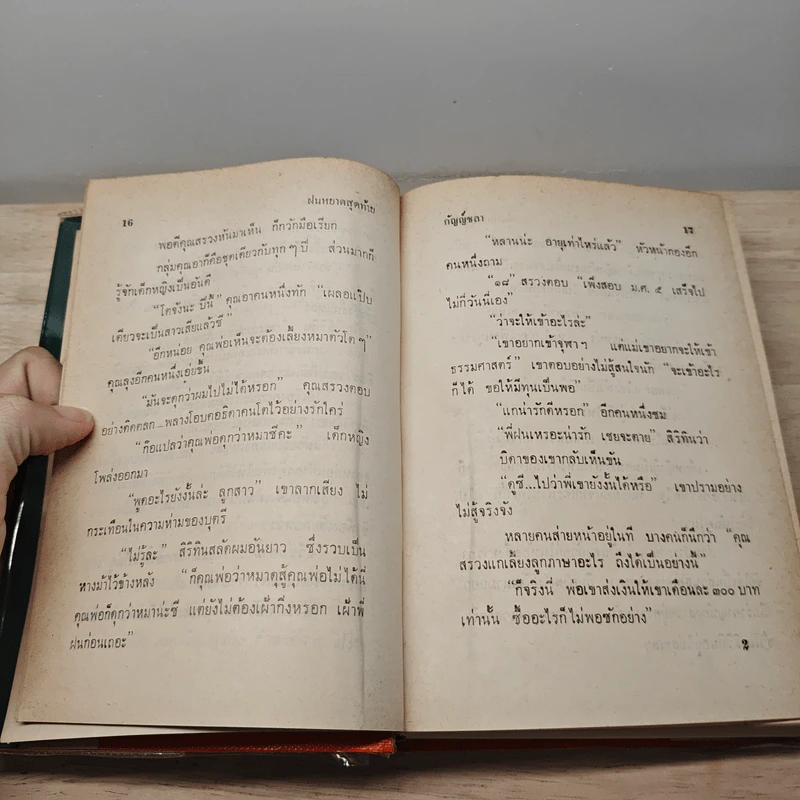 16
ฝนหยาดสุดท้าย
พอดีคุณสรวงหันมาเห็น ก็กวักมือเรียก
กลุ่มคุณอาก็คือชุดเดียวกับทุก ๆ ปี ส่วนมากก็
รู้จักเด็กหญิงเป็นอันดี
“โตจังนะ ปีนี้” คุณอาคนหนึ่งทัก “เผลอแป๊บ
เดียวจะเป็นสาวเสียแล้วซี”
“อีกหน่อย คุณพ่อเห็นจะต้องเลี้ยงหมาตัวโต ๆ”
คุณลุงอีกคนหนึ่งเอ่ยขึ้น
“มันจะดุกว่าผมไปไม่ได้หรอก” คุณสรวงตอบ
อย่างติดตลก...พลางโอบคอธิดาคนโตไว้อย่างรักใคร่
“ก็อแปลว่าคุณพ่อดุกว่าหมาซีคะ” เด็กหญิง
โพล่งออกมา
“พูดอะไรยังงั้นล่ะ ลูกสาว” เขาลากเสียง ไม่
กระเทือนในความห่ามของบุตรี
“ไม่รู้ละ” สิริทินสลัดผมอันยาว ซึ่งรวบเป็น
หางม้าไว้ข้างหลัง “ก็คุณพ่อว่าหมาดุสู้คุณพ่อไม่ได้นี่
คุณพ่อก็ดุกว่าหมาน่ะซี แต่ยังไม่ต้องเฝ้ากิ่งหรอก เฝ้าพี่
ฝนก่อนเถอะ”
กัญญ์ชลา
17
“หลานน่ะ อายุเท่าไหร่แล้ว” หัวหน้ากองอีก
คนหนึ่งถาม
“๑๘” สรวงตอบ “เพิ่งสอบ ม.ศ. ๕ เสร็จไป
ไม่กี่วันนี่เอง”
“ว่าจะให้เข้าอะไรล่ะ”
“เขาอยากเข้าจุฬา ฯ แต่แม่เขาอยากจะให้เข้า
ธรรมศาสตร์” เขาตอบอย่างไม่สู้สนใจนัก “จะเข้าอะไร
ก็ได้ ขอให้มีทุนเป็นพอ”
“แกน่ารักดีหรอก” อีกคนหนึ่งชม
“พี่ฝนเหรอะน่ารัก เชยจะตาย” สิริทินว่า
บิดาของเขากลับเห็นขัน
“ดูซี...ไปว่าพี่เขายังงั้นได้หรือ” เขาปรามอย่าง
ไม่สู้จริงจัง
หลายคนส่ายหน้าอยู่ในที บางคนก็นึกว่า “คุณ
สรวงแกเลี้ยงลูกภาษาอะไร ถึงได้เป็นอย่างนี้”
“ก็จริงนี่ พ่อเขาส่งเงินให้เขาเดือนละ ๓๐๐ บาท
เท่านั้น ซื้ออะไรก็ไม่พอซักอย่าง”
2